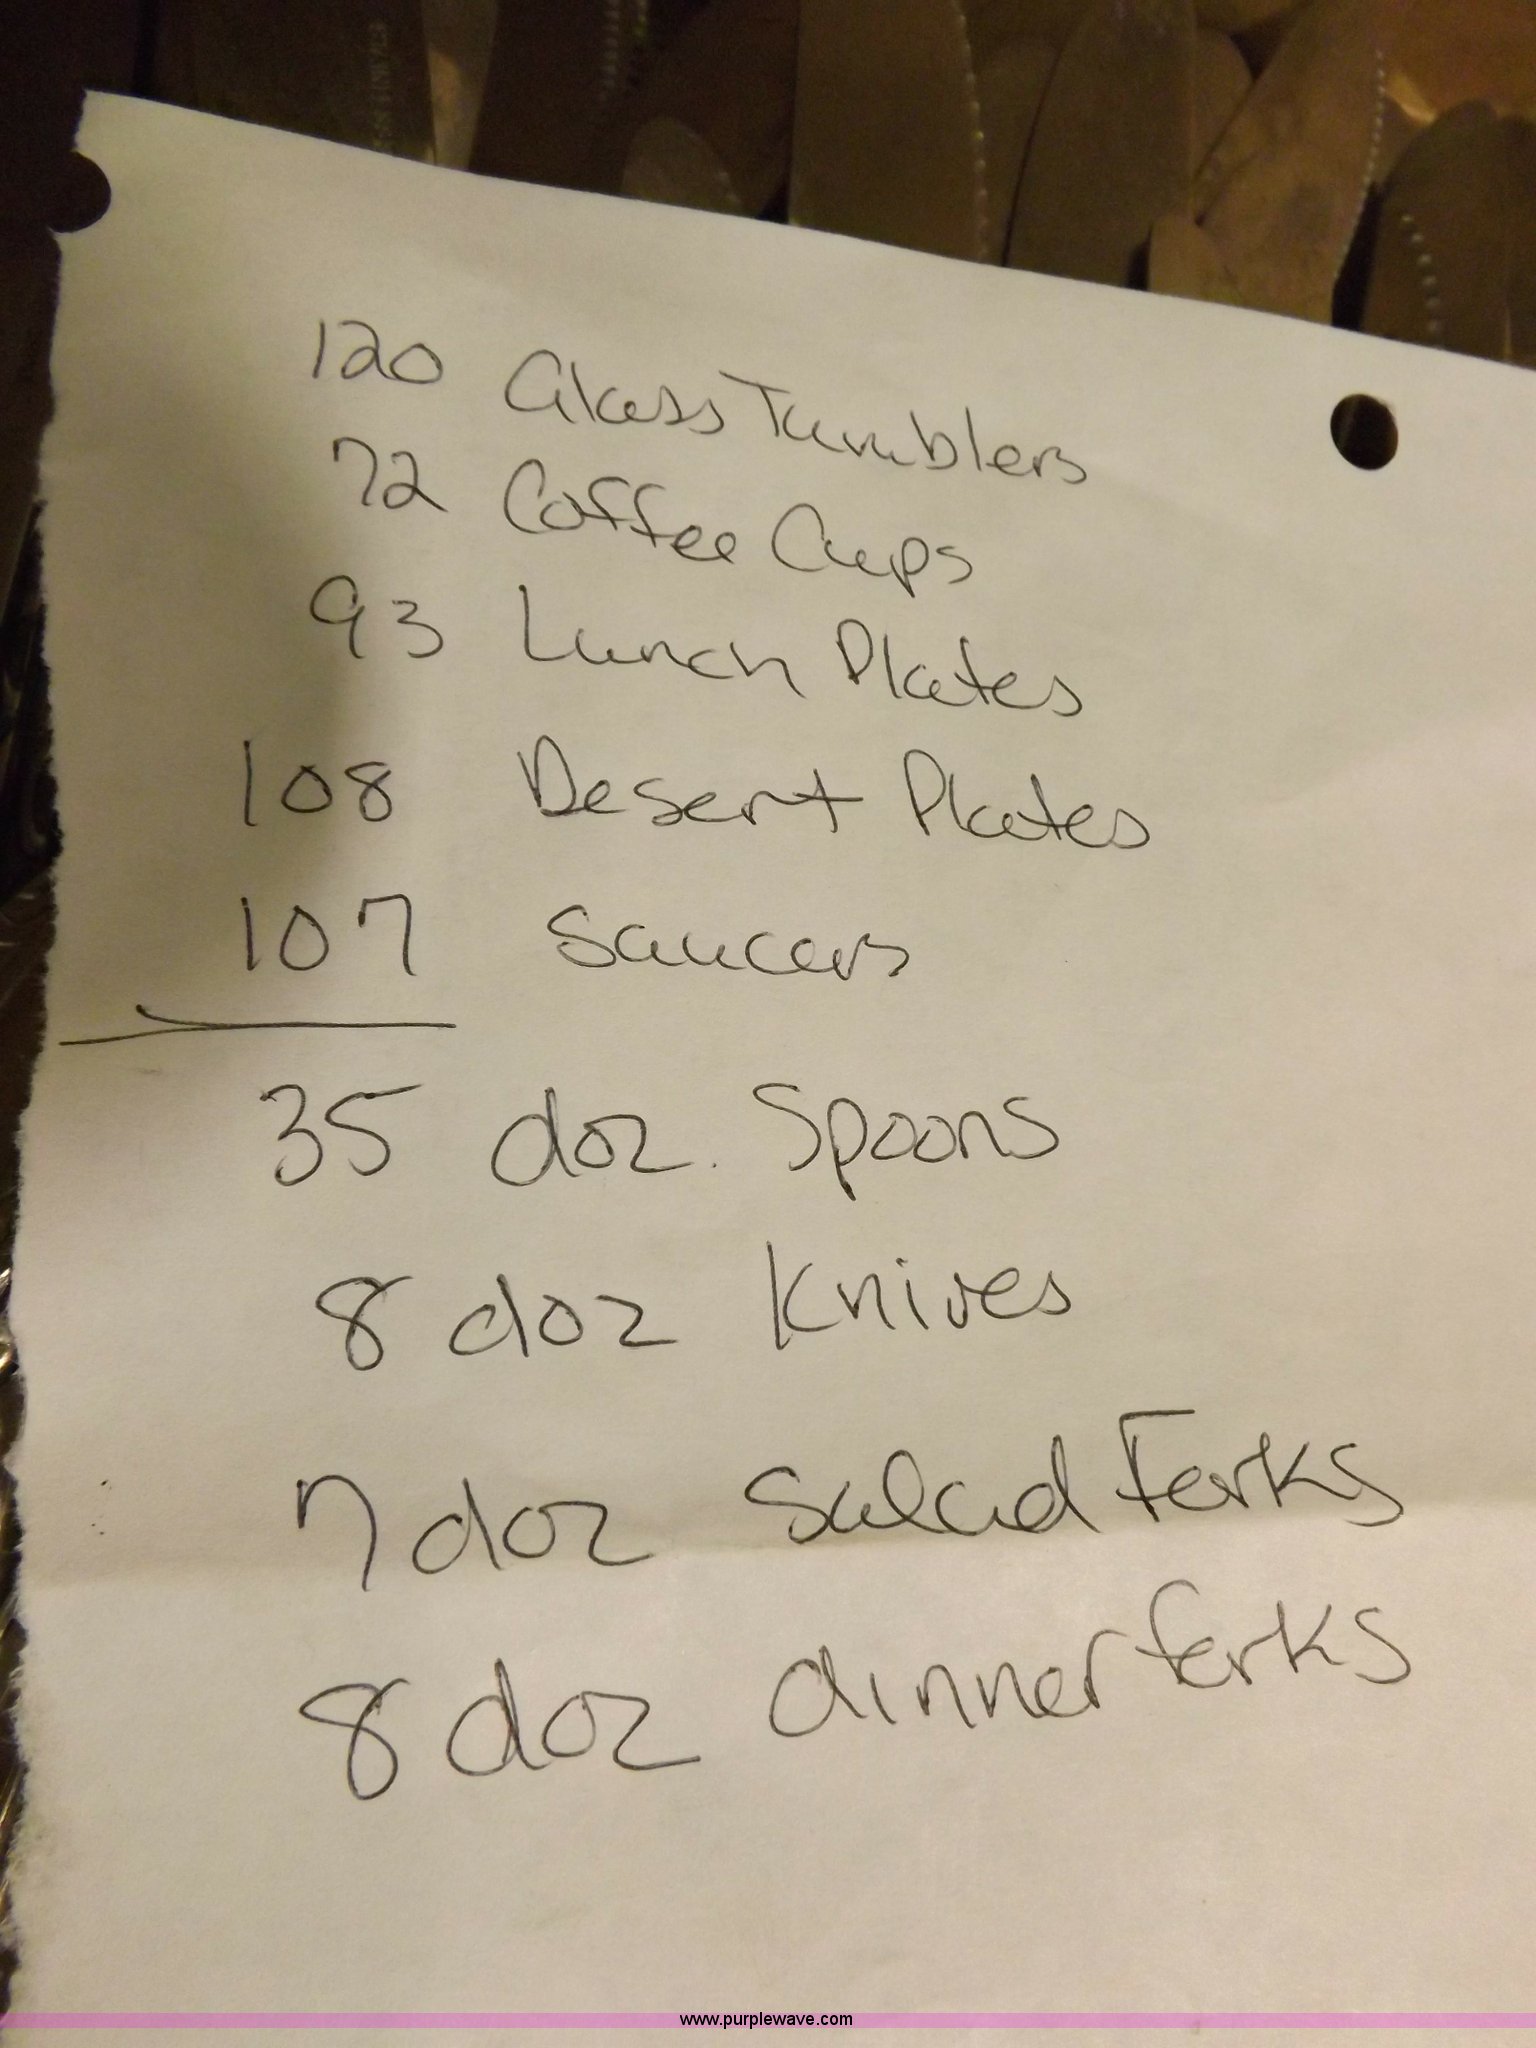 120 Glass Tumblers
72 Coffee Cups
93 Lunch Plates
108 Desert Plates
107 Saucers
35 doz. Spoons
8 doz Knives
7 doz Salad Forks
8 doz dinner forks
www.purplewave.com